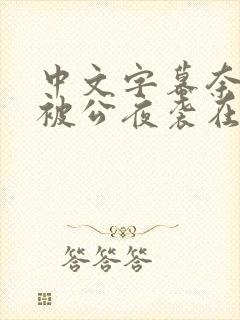 中文字幕奈
被公夜袭在
答答答